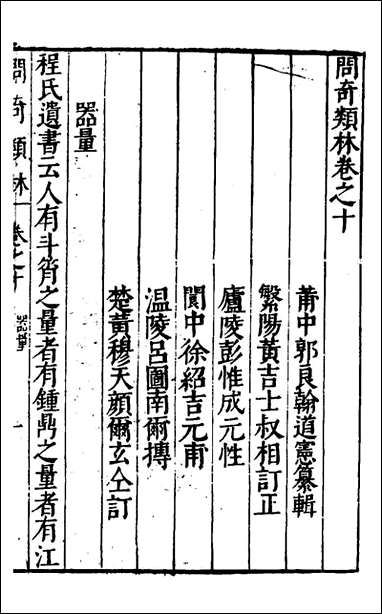 問奇類林卷之十
莆中郭良翰道憲纂輯
繁陽黃吉士叔相訂正
廬陵彭惟成元性
閬中徐紹吉元甫
温陵呂圖南爾摶
楚黃穆天顏爾玄仝訂
器量
程氏遺書云人有斗筲之量者有鍾鼎之量者有江
問奇類林 卷之十 器量 一